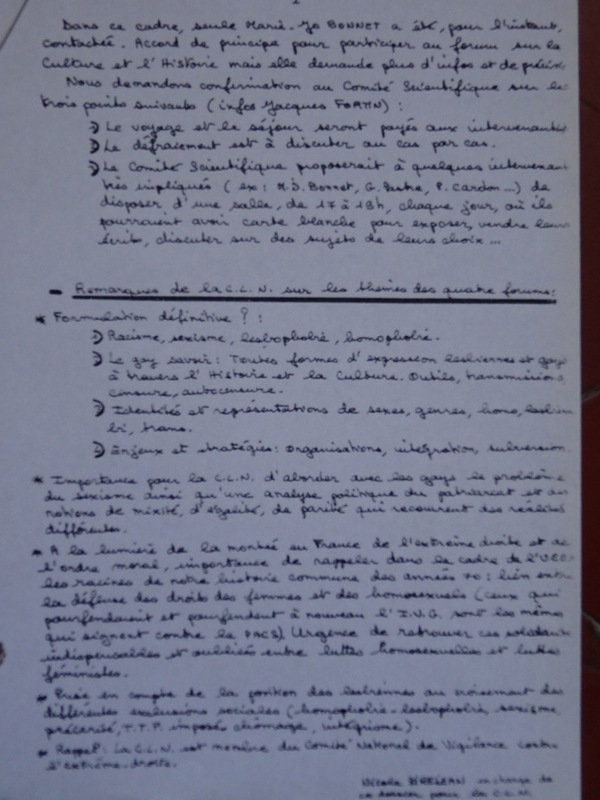 Dans ce cadre, seule Marie-Jo BONNET a été, pour l'instant,
contactée. Accord de principe pour participer au forum sur la
Culture et l'Histoire mais elle demande plus d'infos et de
Nous demandons confirmation au Comité Scientifique sur les
trois points suivants (infos Jacques FORTIN) :
Le voyage et le séjour seront payés aux intervenants
Le défraiement est à discuter au cas par cas.
Le Comité Scientifique proposerait à quelques intervenant
très impliqués (ex: M.J. Bonnet, G. P. Cardon...) de
disposer d'une salle, de 17 à 19h, chaque jour, où ils
pourraient avoir carte blanche pour exposer, vendre leurs
écrits, discuter sur des sujets de leurs choix ...
- Remarques de la C.L.N. sur les thèmes des quatre forums:
* Formulation définitive ? :
Racisme, sexisme, lesbophobie, homophobie.
Le gay savoir: Toutes formes d'expression lesbiennes et gays
à travers l'Histoire et la Culture. Outils, transmissions,
censure, autocensure.
Identité et représentations de sexes, genres, homo, lesbien
bi, trans.
Enjeux et stratégies: Organisations, intégration, subversion.
* Importance pour la C.L.N. d'aborder avec les gays le problème
du sexisme ainsi qu'une analyse politique du patriarcat et des
notions de mixité, d'égalité, de parité qui recouvrent des réalités
différentes.
* A la lumière de la montée en France de l'extrême droite et de
l'ordre moral, importance de rappeler dans le cadre de
les racines de notre histoire commune des années 70: lien entre
la défense des droits des femmes et des homosexuels (ceux qui
pourfendaient et pourfendent à nouveau l'I.V.G. sont les mêmes
qui signent contre le PACS). Urgence de retrouver ces solidarités
indispensables et oubliées entre luttes homosexuelles et luttes
féministes.
* Prise en compte de la position des lesbiennes au croisement des
différentes exclusions sociales (homophobie-lesbophobie, sexisme,
précarité, T.T.P. imposés chômage, intégrisme).
* Rappel: La C.L.N. est membre du Comité National de Vigilance contre
l'extrême-droite.
Nicole en charge de
ce dossier pour la C.L.N.